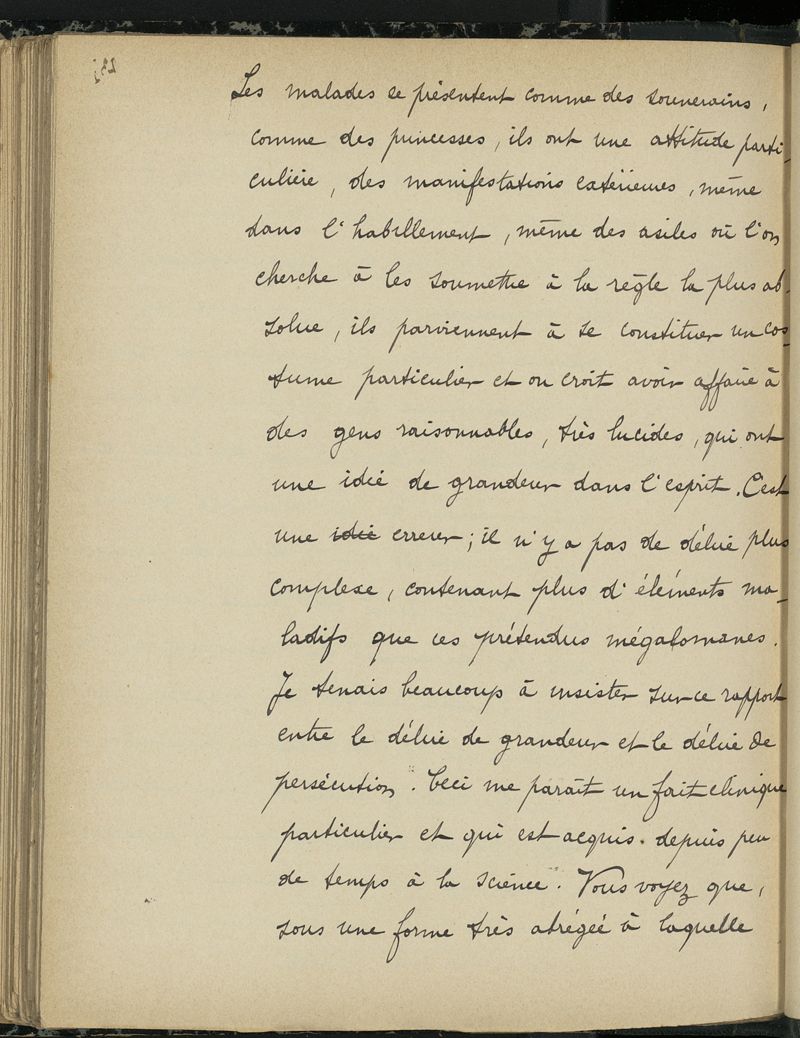 Les malades se présentent comme des souverains,
comme des princesses, ils ont une attitude parti-
culière, des manifestations extérieures, même
dans l'habillement, même des asiles où l'on
cherche à les soumettre à la règle la plus ab-
solue, ils parviennent à se constituer un cos-
tume particulier et on croit avoir affaire à
des gens raisonnables, très lucides, qui ont
une idée de grandeur dans l'esprit. C'est
une idée erreur; il n'y a pas de délire plus
complexe, contenant plus d'éléments ma-
ladifs que ces prétendus mégalomanes.
Je tenais beaucoup à insister sur ce rapport
entre le délire de grandeur et le délire de
persécution. Ceci me paraît un fait clinique
particulier et qui est acquis depuis peu
de temps à la science. Vous voyez que,
sous une forme très abrégée à laquelle